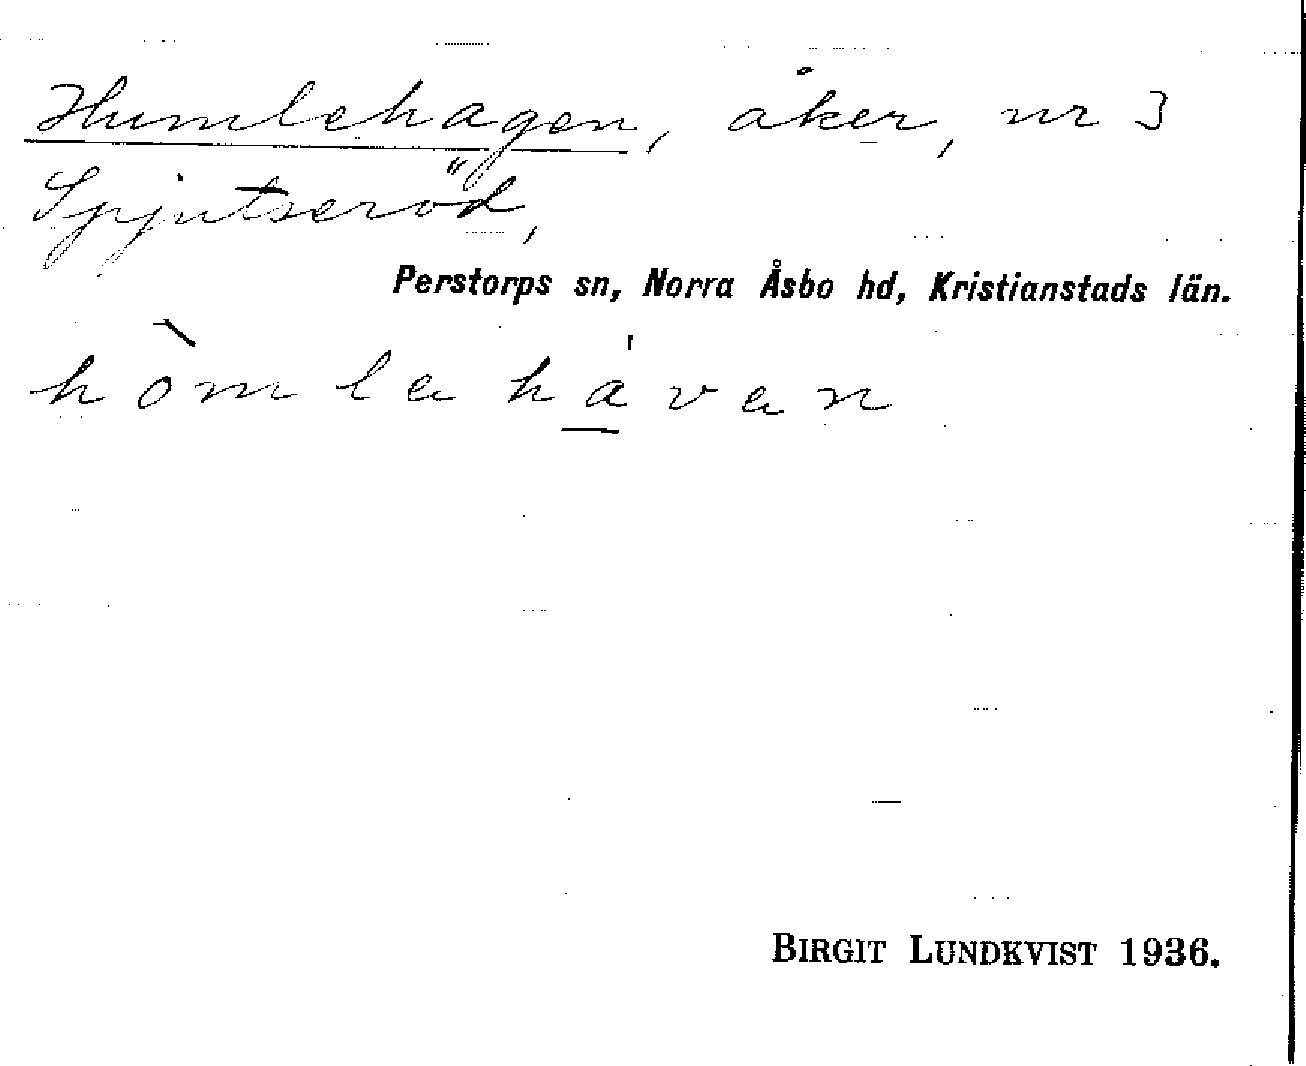 Humlehagen, åker, nr 3
Spjutseröd,
Perstorps sn, Norra Åsbo hd, Kristianstads län.
hòmlahávan
BIRGIT LUNDKVIST 1936.